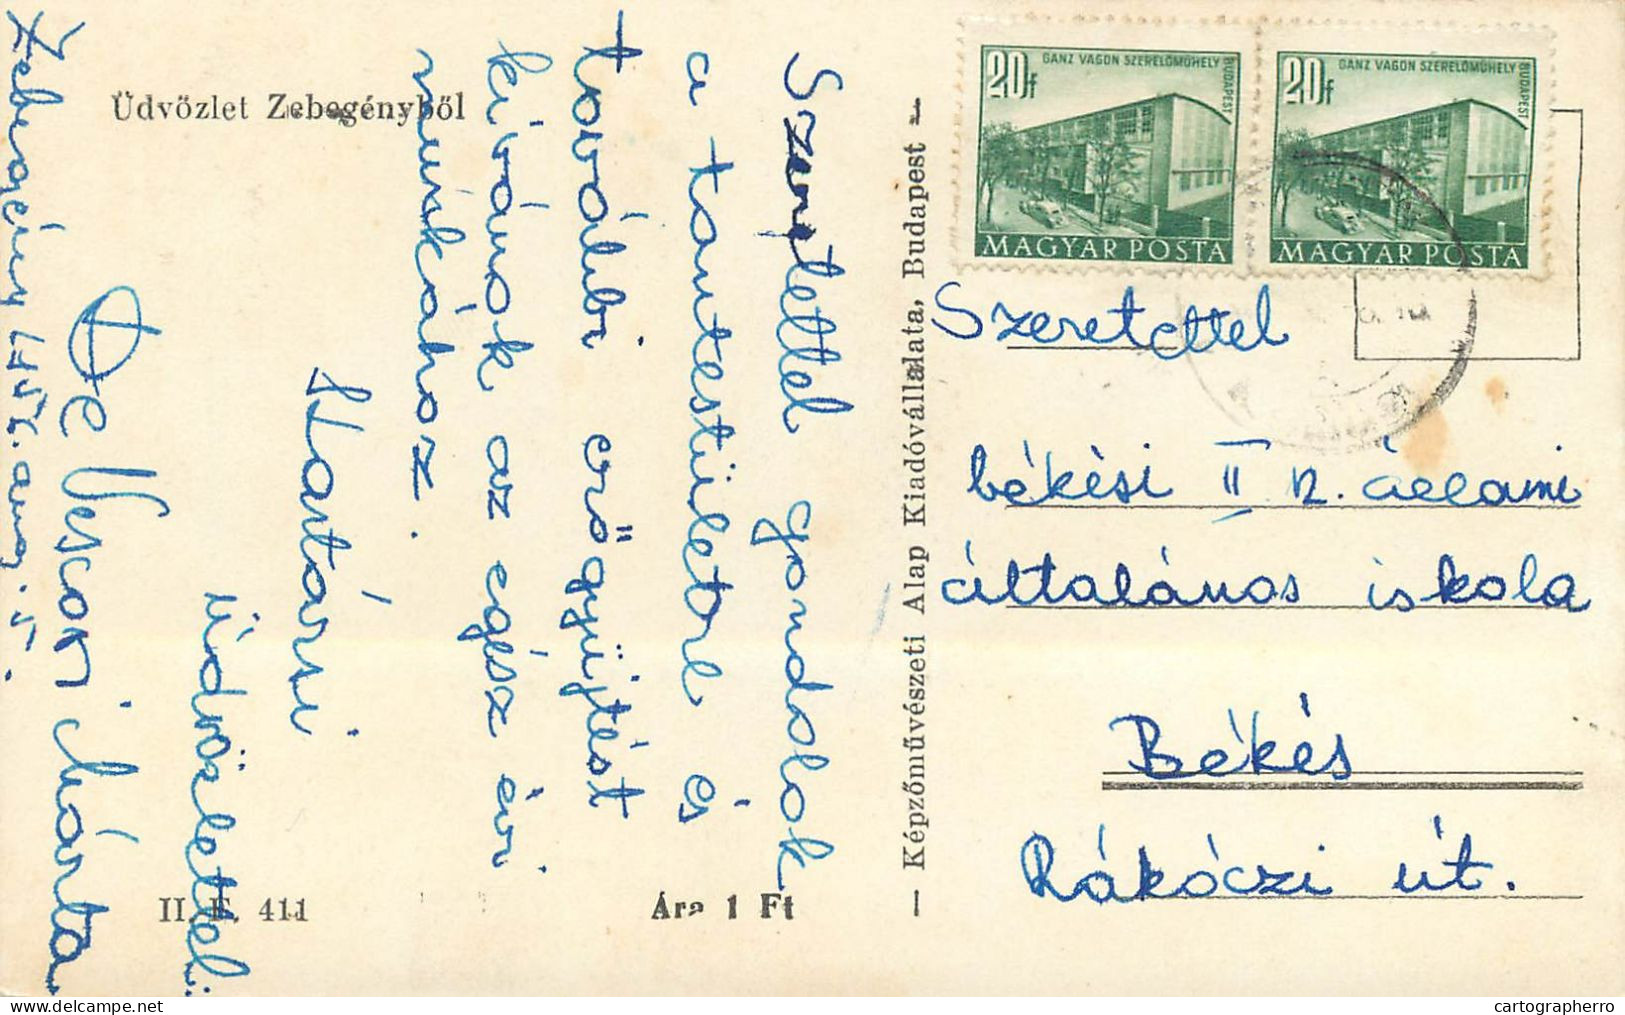 Üdvözlet Zebegényből
Zebegény 1956. aug. 5.
Szeretettel gondolok
a tantestületre és
további erőgyűjtést
kívánok az egész évi
munkához.
Hartársi
üdvözlettel:
Márta
II. F. 411
Ára 1 Ft
— Képzőművészeti Alap Kiadóvállalata, Budapest —
20f
GANZ VAGON SZERELŐMŰHELY
BUDAPEST
MAGYAR POSTA
20f
GANZ VAGON SZERELŐMŰHELY
BUDAPEST
MAGYAR POSTA
Szeretettel
békési II r. állami
általános iskola
Békés
Rákóczi út.
cartographerro